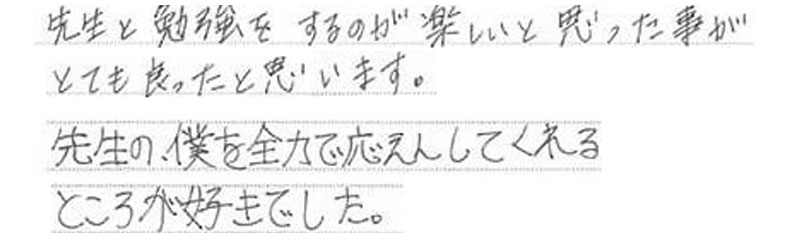 先生と勉強をするのが楽しいと思った事が
とても良ったと思います。
先生の、僕を全力で応えんしてくれる
ところが好きでした。